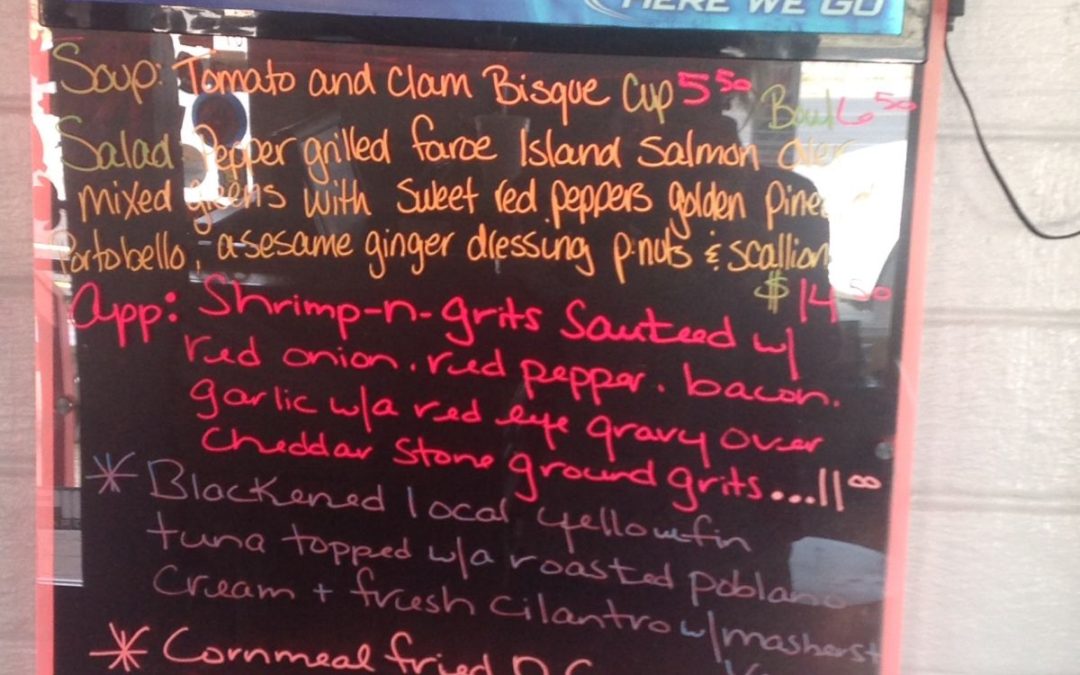 HERE WE GO
Soup: Tomato and Clam Bisque Cup 5 50 / Bowl 6 50
Salad Pepper grilled faroe Island Salmon over
mixed greens with sweet red peppers golden
Portobello, a sesame ginger dressing p.nuts & scallion
$14 50
App: Shrimp-n-grits Sauteed w/
red onion. red pepper. bacon.
garlic w/a red eye gravy over
cheddar stone ground grits...11 00
* Blackened local yellowfin
tuna topped w/a roasted poblano
cream + fresh cilantro w/mashers+
* Cornmeal fried